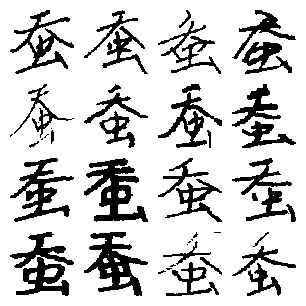 蚕蚕蚕蚕
蚕蚕蚕蚕
蚕蚕蚕蚕
蚕蚕蚕蚕